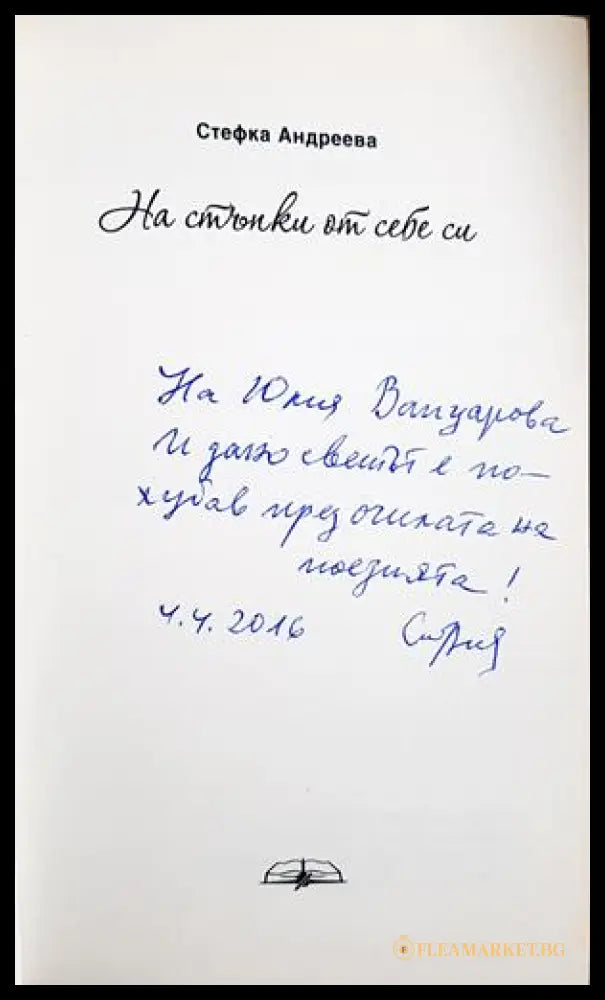 Стефка Андреева
На стъпки от себе си
На Юлия Вапцарова
И дано светът е по–
хубав през очилата на
поезията!
4.4.2016
FLEAMARKET.BG